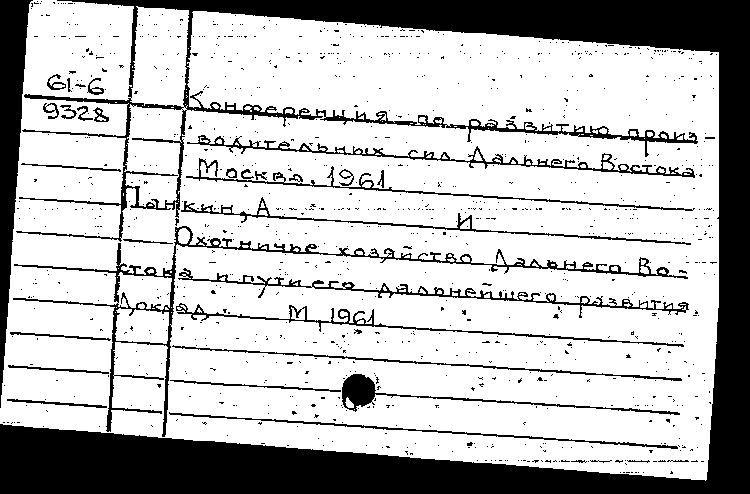 61-6
9328
Конференция по развитию произ-
водительных сил Дальнего Востока.
Москва. 1961.
Панкин, А И
Охотничье хозяйство Дальнего Во-
стока и пути его дальнейшего развития.
Доклад. М, 1961.